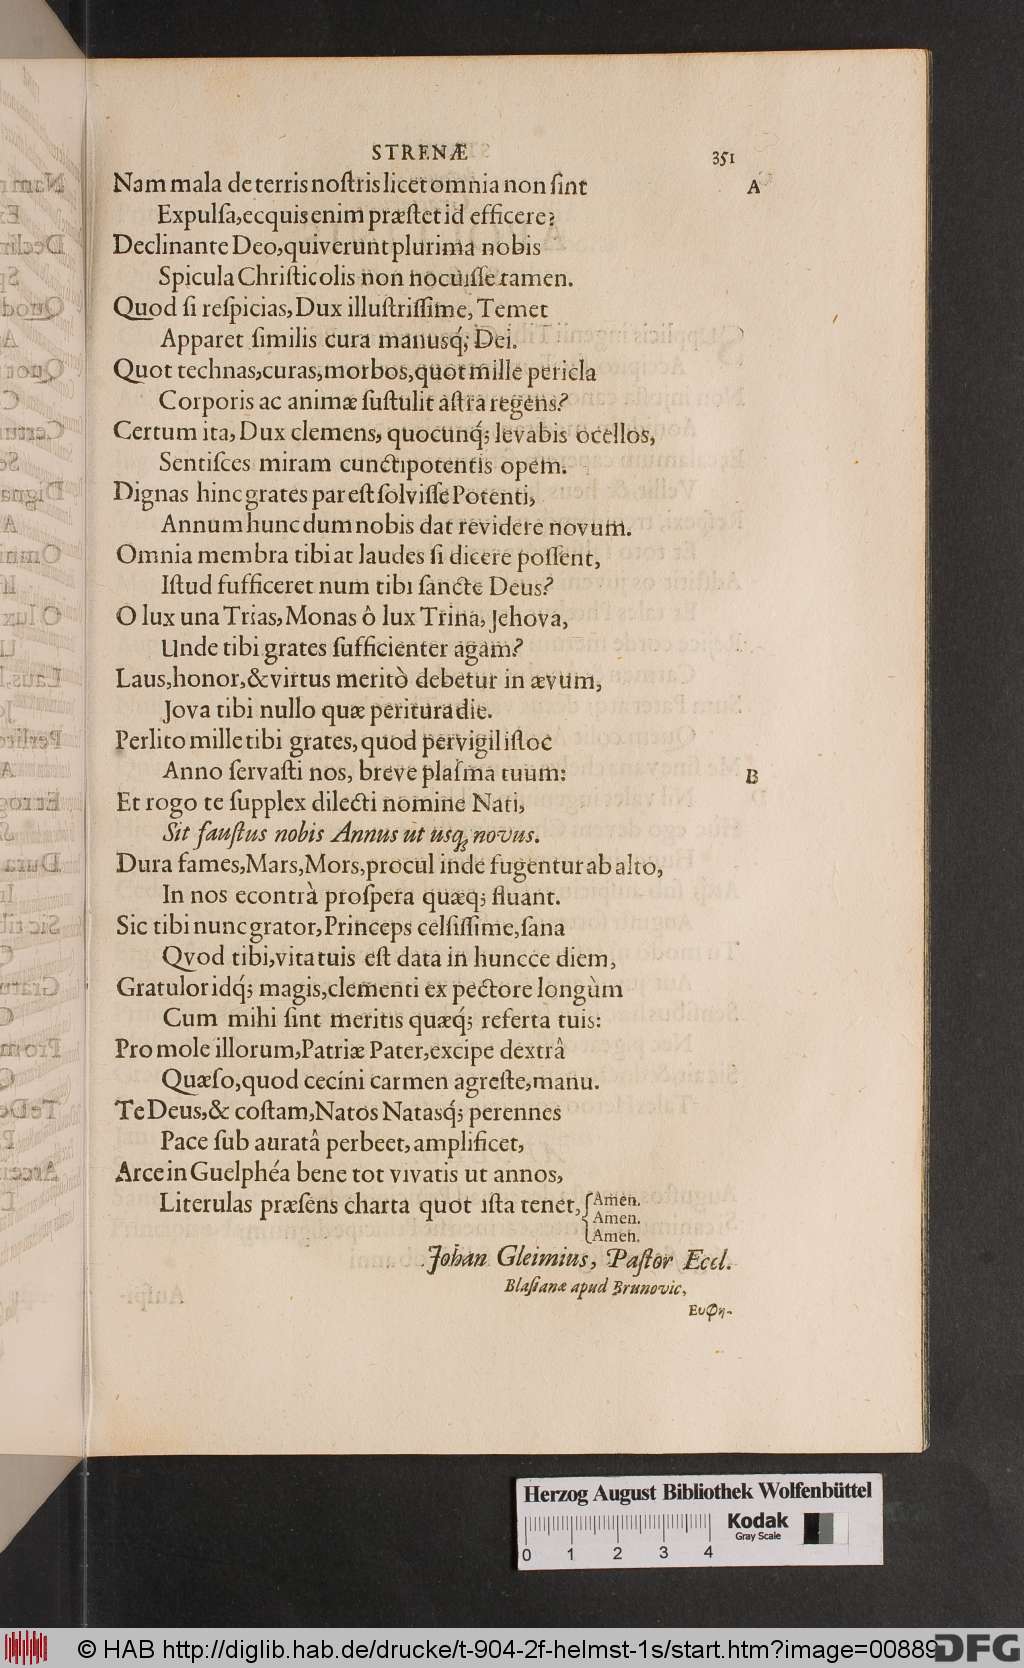 STRENÆ 351
Nam mala de terris noſtris licet omnia non ſint A
Expulſa, ecquis enim præſtet id efficere?
Declinante Deo, quiverunt plurima nobis
Spicula Chriſticolis non nocuiſſe tamen.
Quod ſi reſpicias, Dux illuſtriſſime, Temet
Apparet ſimilis cura manusq́; Dei.
Quot technas, curas, morbos, quot mille pericla
Corporis ac animæ ſuſtulit aſtra regens?
Certum ita, Dux clemens, quocunq́; levabis ocellos,
Sentiſces miram cunctipotentis opem.
Dignas hinc grates par eſt ſolviſſe Potenti,
Annum hunc dum nobis dat revidere novum.
Omnia membra tibi at laudes ſi dicere poſſent,
Iſtud ſufficeret num tibi ſancte Deus?
O lux una Trias, Monas ô lux Trina, Jehova,
Unde tibi grates ſufficienter agam?
Laus, honor, & virtus meritò debetur in ævum,
Jova tibi nullo quæ peritura die.
Perlito mille tibi grates, quod pervigil iſtoc
Anno ſervaſti nos, breve plaſma tuum: B
Et rogo te ſupplex dilecti nomine Nati,
Sit fauſtus nobis Annus ut usq; novus.
Dura fames, Mars, Mors, procul inde fugentur ab alto,
In nos econtrà proſpera quæq; fluant.
Sic tibi nunc grator, Princeps celſiſſime, ſana
Qvod tibi, vita tuis eſt data in huncce diem,
Gratulor idq́; magis, clementi ex pectore longùm
Cum mihi ſint meritis quæq́; referta tuis:
Pro mole illorum, Patriæ Pater, excipe dextrâ
Quæſo, quod cecíni carmen agreſte, manu.
Te Deus, & coſtam, Natos Natasq́; perennes
Pace ſub auratâ perbeet, amplificet,
Arce in Guelphéa bene tot vivatis ut annos,
Literulas præſens charta quot iſta tenet, { Amen.
Amen.
Amen.
Johan Gleimius, Paſtor Eccl.
Blaſianæ apud Brunovic,
Ευφη-
Herzog August Bibliothek Wolfenbüttel
Kodak
Gray Scale
0 1 2 3 4
© HAB http://diglib.hab.de/drucke/t-904-2f-helmst-1s/start.htm?image=00889
DFG